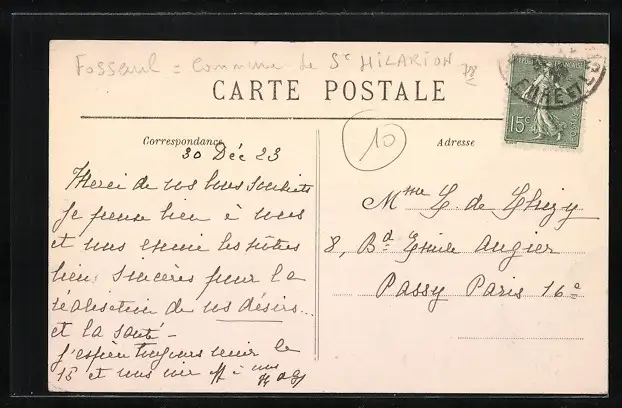 Fosseuil = Commune de St HILARION 78
CARTE POSTALE
Correspondance
Adresse
15c
10
30 Déc 23
Merci de vos bons souhaits
Je pense bien à vous
et vous envoie les nôtres
bien sincères pour la
réalisation de vos désirs...
et la santé -
J'espère toujours venir le
15 et vous
Mme L. de
8, Bd Emile Augier
Passy Paris 16e